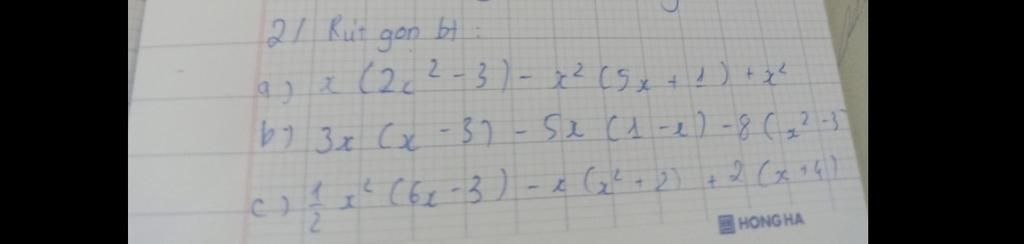 2/ Rút gọn bt :
a) x (2x² - 3) - x² (5x + 1) + x²
b) 3x (x - 3) - 5x (1 - x) - 8 (x² - 3
c) 1/2 x² (6x - 3) - x (x² + 2) + 2 (x + 4)
HONG HA